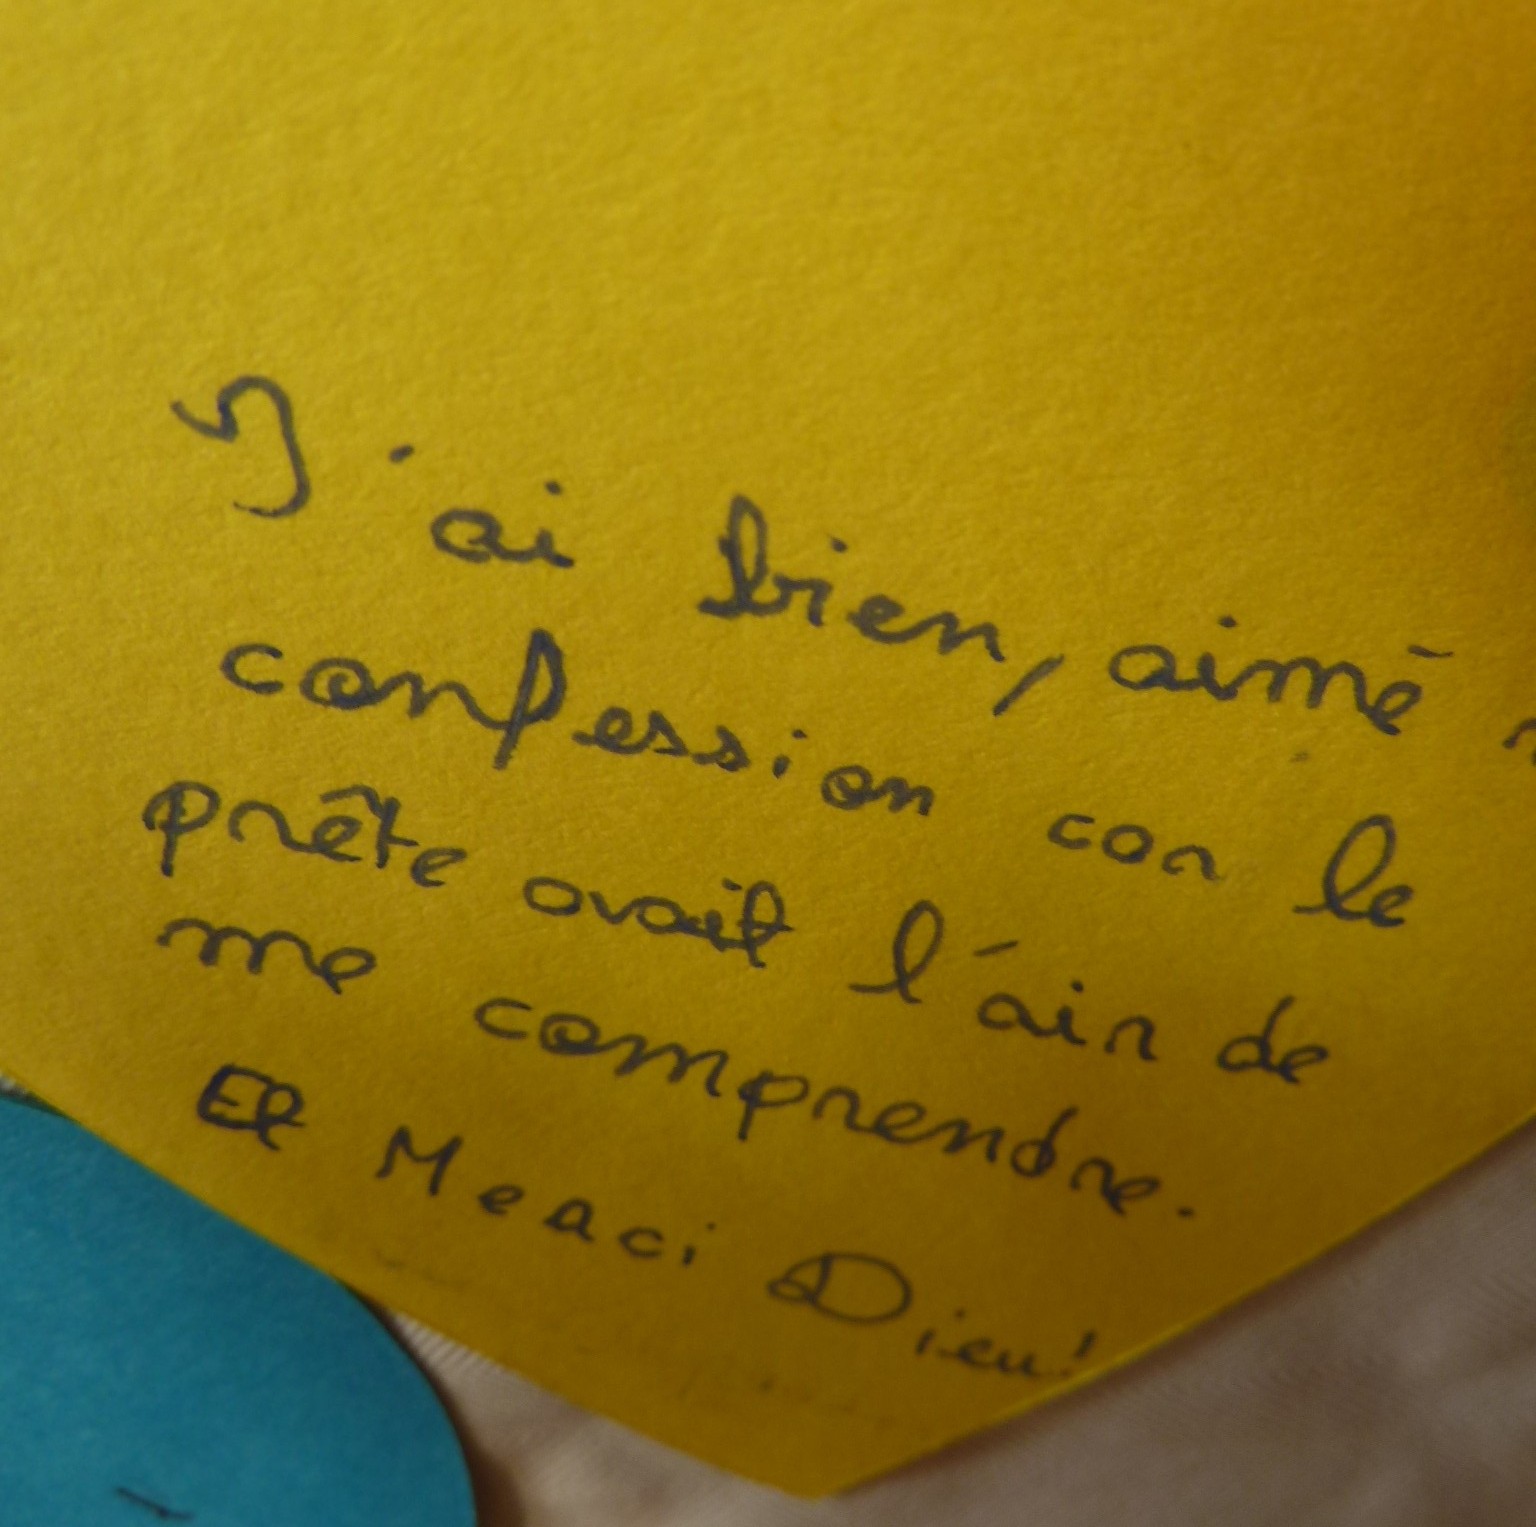 J'ai bien, aimé
confession car le
prête avait l'air de
me comprendre.
Et Merci Dieu!